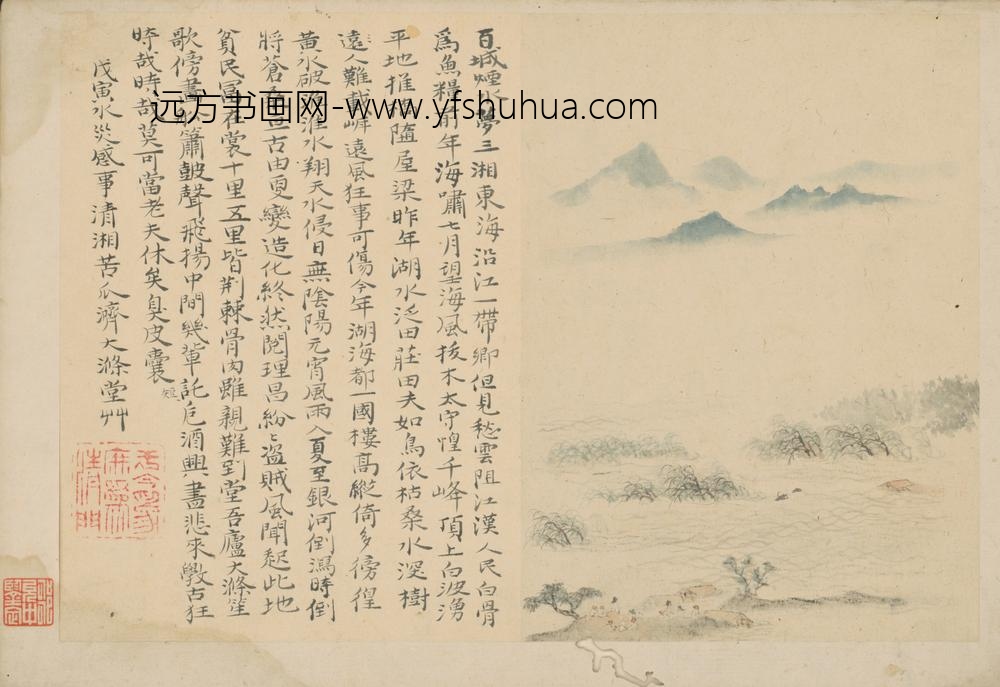 百城煙水夢三湘東海沿江一帶鄉但見愁雲阻江漢人民白骨
爲魚糧前年海嘯七月望海風拔木太守惶千峰頂上白波湧
平地推隨屋梁昨年湖水泛田莊田夫如鳥依枯桑水深樹
遠人難載岸遠風狂事可傷今年湖海都一國樓高縱倚多徬徨
黃水破淮水翔天水侵日無陰陽元宵風雨入夏至銀河倒瀉時倒
將蒼古由更變造化終然閱理昌紛〻盜賊風聞起此地
貧民冨在裳十里五里皆荆棘骨肉雖親難到堂吾廬大滌笙
歌傍畫簫鼓聲飛揚中間幾輩託卮酒興盡悲來斆古狂
時哉時哉莫可當老夫休矣臭皮囊
戊寅水災感事清湘苦瓜濟大滌堂艸
远方书画网-www.yfshuhua.com